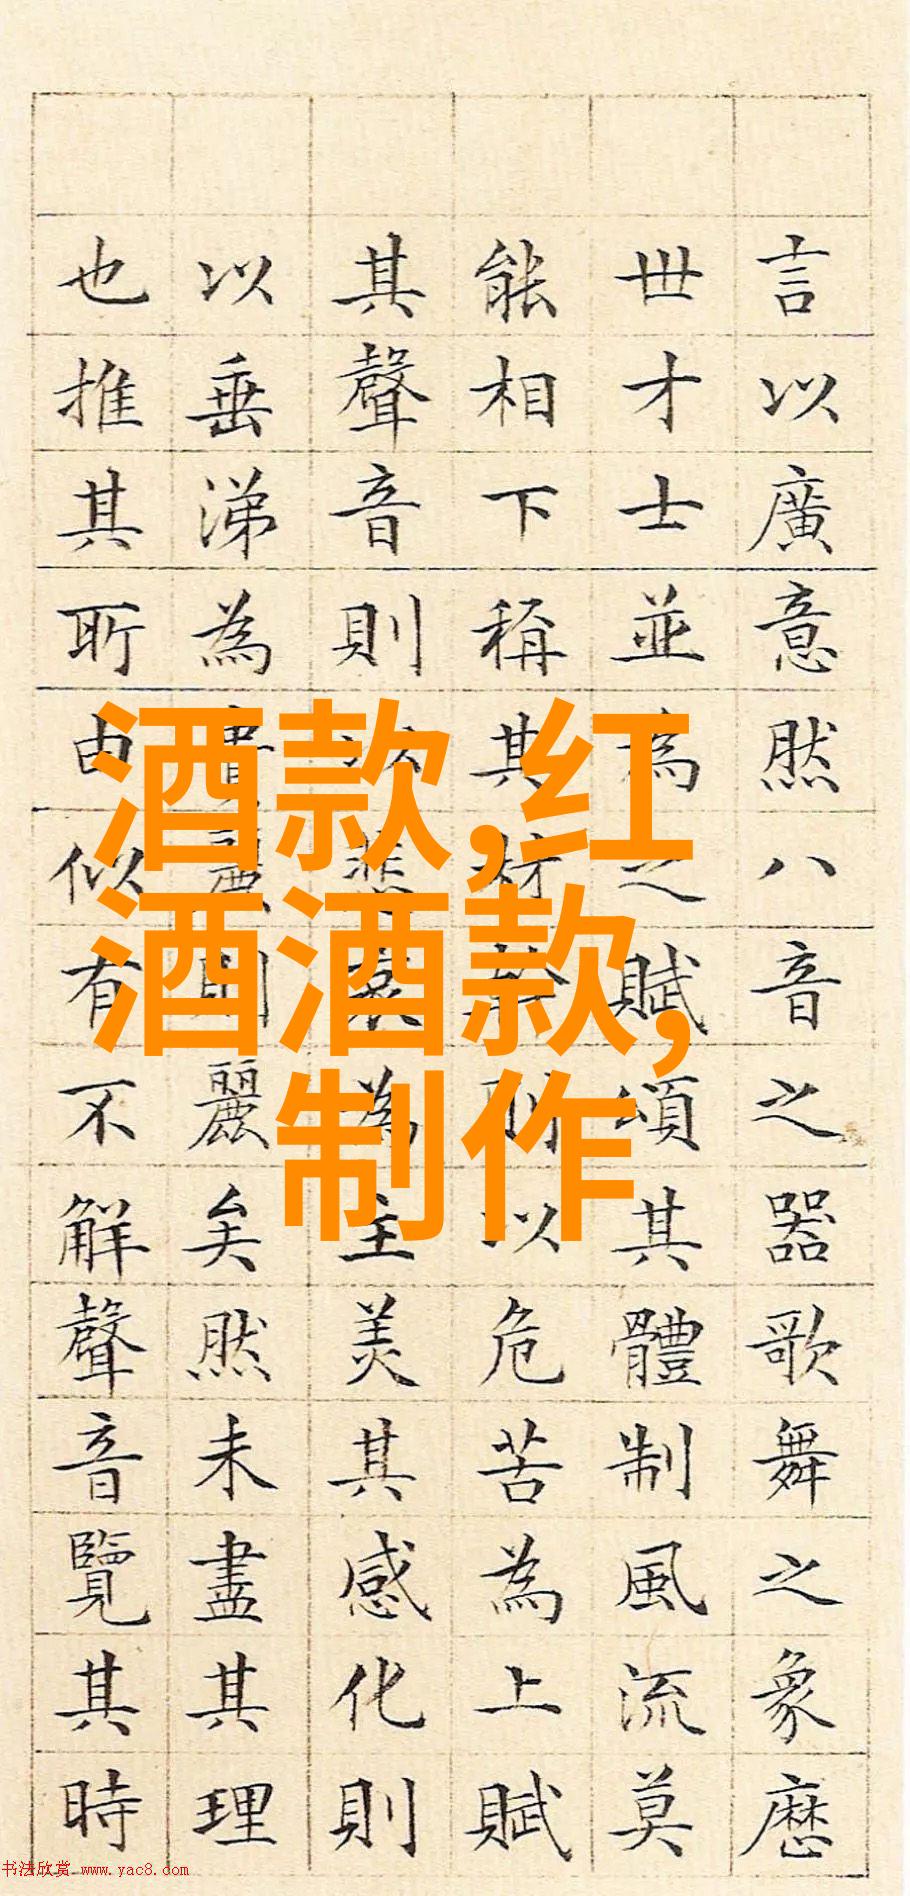 言以廣意然八音之器歌舞之象歷
世才士並為之賦頌其體制風流莫
能相下稱其材幹則以危苦為上賦
其聲音則以悲哀為主美其感化則
以垂涕為貴麗則麗矣然未盡其理
也推其所由似有不解聲音覽其時
酒款,红
酒酒款,
制作
书法欣赏 www.yac8.com